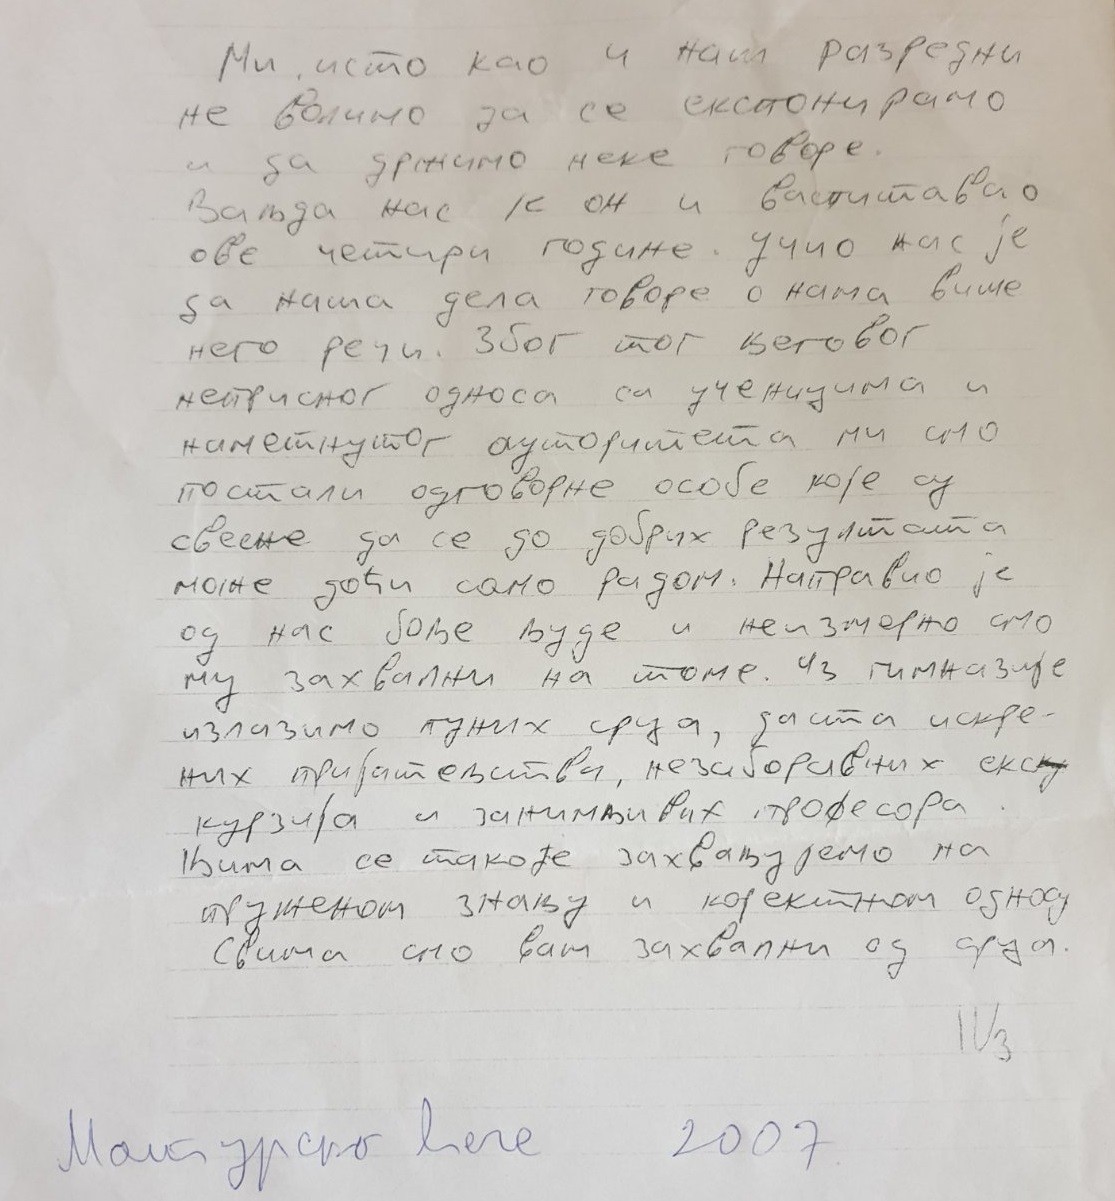 Ми, исто као и наш разредни
не волимо да се експонирамо
и да држимо неке говоре.
Ваљда нас је он и васпитавао
ове четири године. Учио нас је
да наша дела говоре о нама више
него речи. Због тог његовог
неприсног односа са ученицима и
наметнутог ауторитета ми смо
постали одговорне особе које су
свесне да се до добрих резултата
може доћи само радом. Направио је
од нас боље људе и неизмерно смо
му захвални на томе. Из гимназије
излазимо пуних срца, доста искре-
них пријатељства, незаборавних екс
курзија и занимљивих професора.
Њима се такође захваљујемо на
пруженом знању и коректном односу
Свима смо вам захвални од срца.
IV/3
Матурско вече 2007.